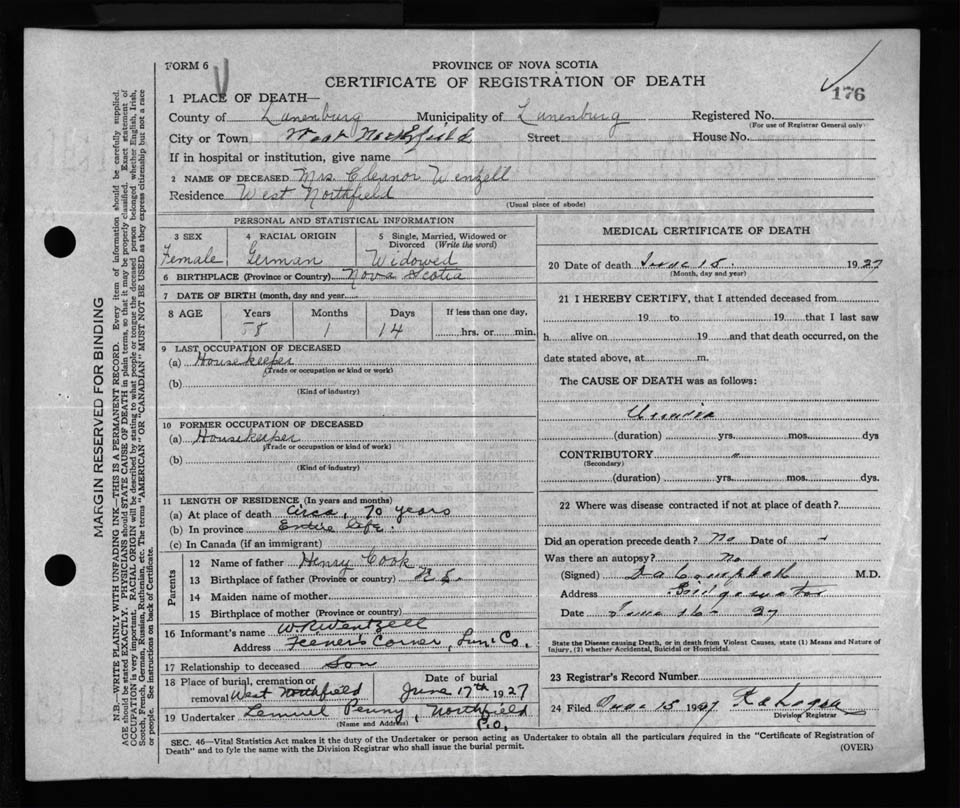 FORM 6
V
PROVINCE OF NOVA SCOTIA
CERTIFICATE OF REGISTRATION OF DEATH
176
1 PLACE OF DEATH—
County of Lunenburg Municipality of Lunenburg Registered No.
(For use of Registrar General only)
City or Town West Northfield Street House No.
If in hospital or institution, give name
2 NAME OF DECEASED Mrs. Eleanor Wenzell
Residence West Northfield
(Usual place of abode)
PERSONAL AND STATISTICAL INFORMATION
3 SEX 4 RACIAL ORIGIN 5 Single, Married, Widowed or Divorced (Write the word)
Female German Widowed
6 BIRTHPLACE (Province or Country) Nova Scotia
7 DATE OF BIRTH (month, day and year)
8 AGE Years Months Days If less than one day,
1 14 hrs. or min.
9 LAST OCCUPATION OF DECEASED
(a) Housekeeper
(Trade or occupation or kind or work)
(b)
(Kind of industry)
10 FORMER OCCUPATION OF DECEASED
(a) Housekeeper
(Trade or occupation or kind of work)
(b)
(Kind of industry)
11 LENGTH OF RESIDENCE (In years and months)
(a) At place of death Circa, 70 years
(b) In province Entire life.
(c) In Canada (if an immigrant)
Parents
12 Name of father Henry Cook
13 Birthplace of father (Province or country) N.S.
14 Maiden name of mother
15 Birthplace of mother (Province or country)
16 Informant's name W.R. Wentzell
Address Feener's Corner, Lun. Co.
17 Relationship to deceased Son
18 Place of burial, cremation or removal West Northfield
Date of burial
June 17th 1927
19 Undertaker Lemuel Penny, Northfield P.O.
(Name and Address)
MEDICAL CERTIFICATE OF DEATH
20 Date of death June 15. 1927
(Month, day and year)
21 I HEREBY CERTIFY, that I attended deceased from
19 to 19 that I last saw
h alive on 19 and that death occurred, on the
date stated above, at m.
The CAUSE OF DEATH was as follows:
(duration) yrs. mos. dys
CONTRIBUTORY "
(Secondary)
(duration) yrs. mos. dys.
22 Where was disease contracted if not at place of death?
Did an operation precede death? No Date of -
Was there an autopsy? No
(Signed) D A Campbell M.D.
Address Bridgewater
Date June 16 - 27
State the Disease causing Death, or in death from Violent Causes, state (1) Means and Nature of
Injury, (2) whether Accidental, Suicidal or Homicidal.
23 Registrar's Record Number
24 Filed 15 1927
Division Registrar
SEC. 46—Vital Statistics Act makes it the duty of the Undertaker or person acting as Undertaker to obtain all the particulars required in the "Certificate of Registration of
Death" and to fyle the same with the Division Registrar who shall issue the burial permit.
(OVER)
MARGIN RESERVED FOR BINDING
N.B.—WRITE PLAINLY WITH UNFADING INK—THIS IS A PERMANENT RECORD. Every item of information should be carefully supplied.
AGE should be stated EXACTLY. PHYSICIANS should STATE CAUSE OF DEATH in plain terms, so that it may be properly classified. Exact statement of
OCCUPATION is very important. RACIAL ORIGIN will be described by stating to what people or tongue the deceased person belonged whether English, Irish,
Scotch, French, German, Russian, Ruthenian, etc. The terms "AMERICAN" OR "CANADIAN" MUST NOT BE USED as they express citizenship but not a race
or people. See instructions on back of Certificate.